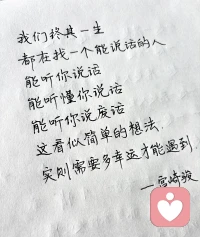 我们终其一生
都在找一个能说话的人
能听你说话
能听懂你说话
能听你说废话
这看似简单的想法,
实则需要多幸运才能遇到,
—宫崎骏